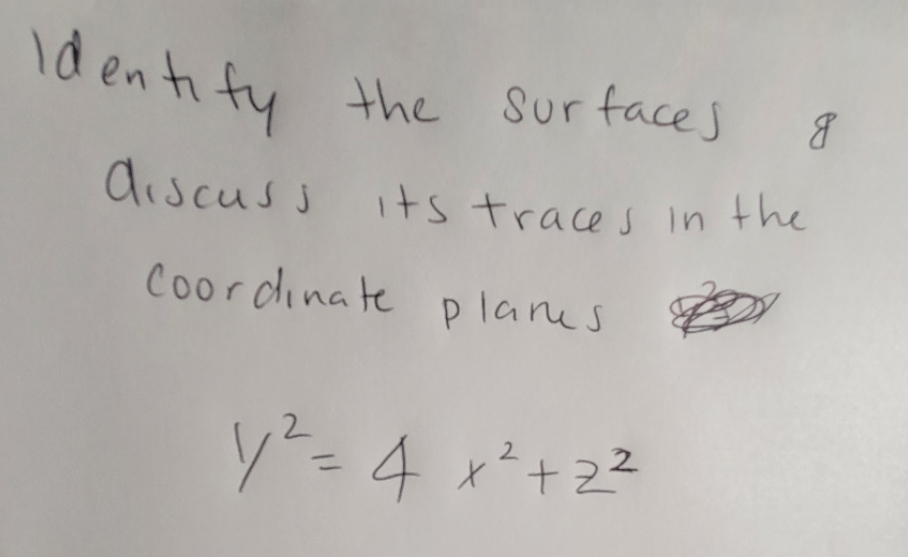 Identify the surfaces &
discuss its traces in the
coordinate planes
y² = 4 x² + z²